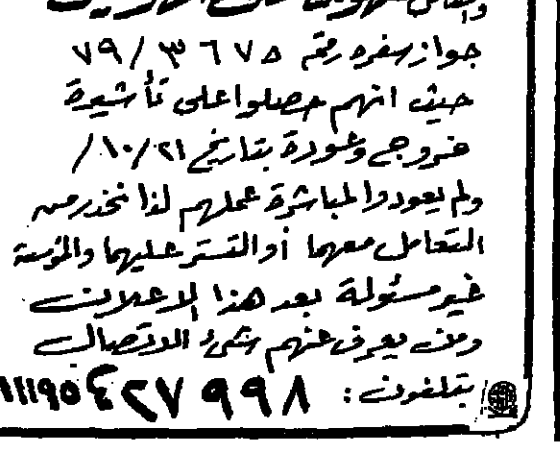 جواز سفره رقم ٣٦٧٥ / ٧٩
حيث انهم حصلوا على تأشيرة
خروج وعودة بتاريخ ٢١/١٠/
ولم يعودوا لمباشرة عملهم لذا نحذر من
التعامل معهما أو التستر عليهما والمؤسسة
غير مسئولة بعد هذا الاعلان
ومن يعرف عنهم شئ الاتصال
بتلفون: ٤٢٧٩٩٨
١١١٩٥